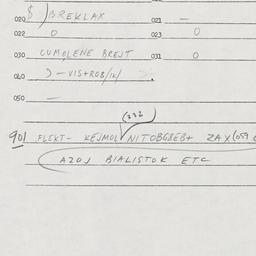 020 $ ) BREKLAX 021 —
022 0 023 0
030 CUMOLENE BREJT 031 0
040 ) – VIS+ROB/12/
050 —
(222
901 FLEKT- KEJMOL NITOBGBEB+ ZAX (059
AZOJ BIALISTOK ETC